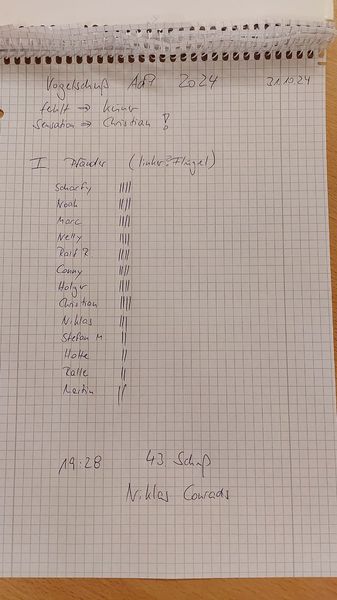 Vogelschuß AdP 2024 31.10.24
fehlt → keiner
Sensation → Christian !
I Pfänder (linker? Flügel)
Scharfy ||||
Noah ||||
Marc ||||
Nelly ||||
Ralf R ||||
Conny ||||
Holger ||||
Christian ||||
Niklas |||
Stefan M ||
Hotte ||
Ralle ||
Martin ||
19:28 43 Schuß
Niklas Conrads